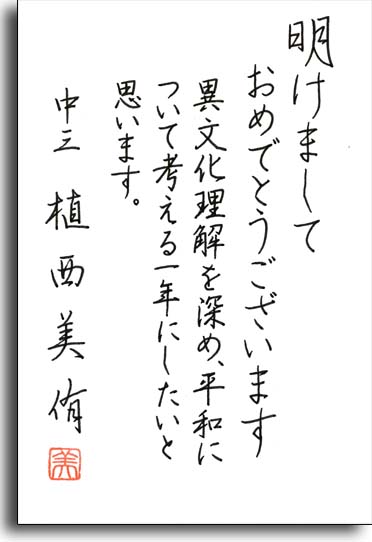 明けまして
おめでとうございます
異文化理解を深め、平和に
ついて考える一年にしたいと
思います。
中三 植西美侑
美